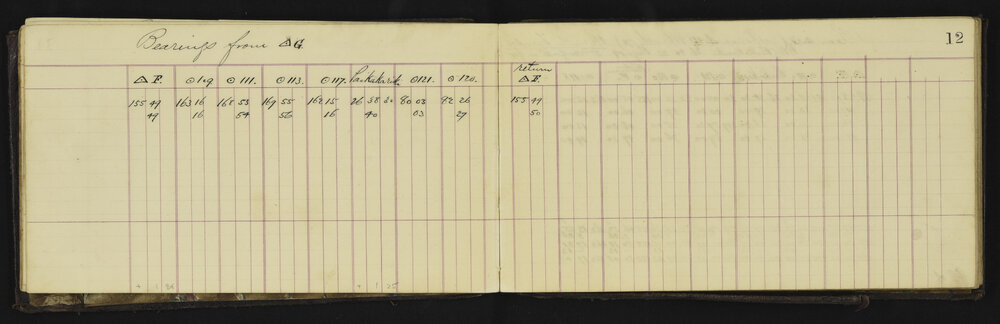 12
Bearings from △G.
return
△ F. ⊙ 109 ⊙ 111. ⊙ 113. ⊙ 117. ⊙121. ⊙ 120. △ F.
155 49 163 16 168 53 169 55 162 15 26 38 30 80 03 82 26 155 49
49 16 54 56 16 40 03 27 50
+ 1 25